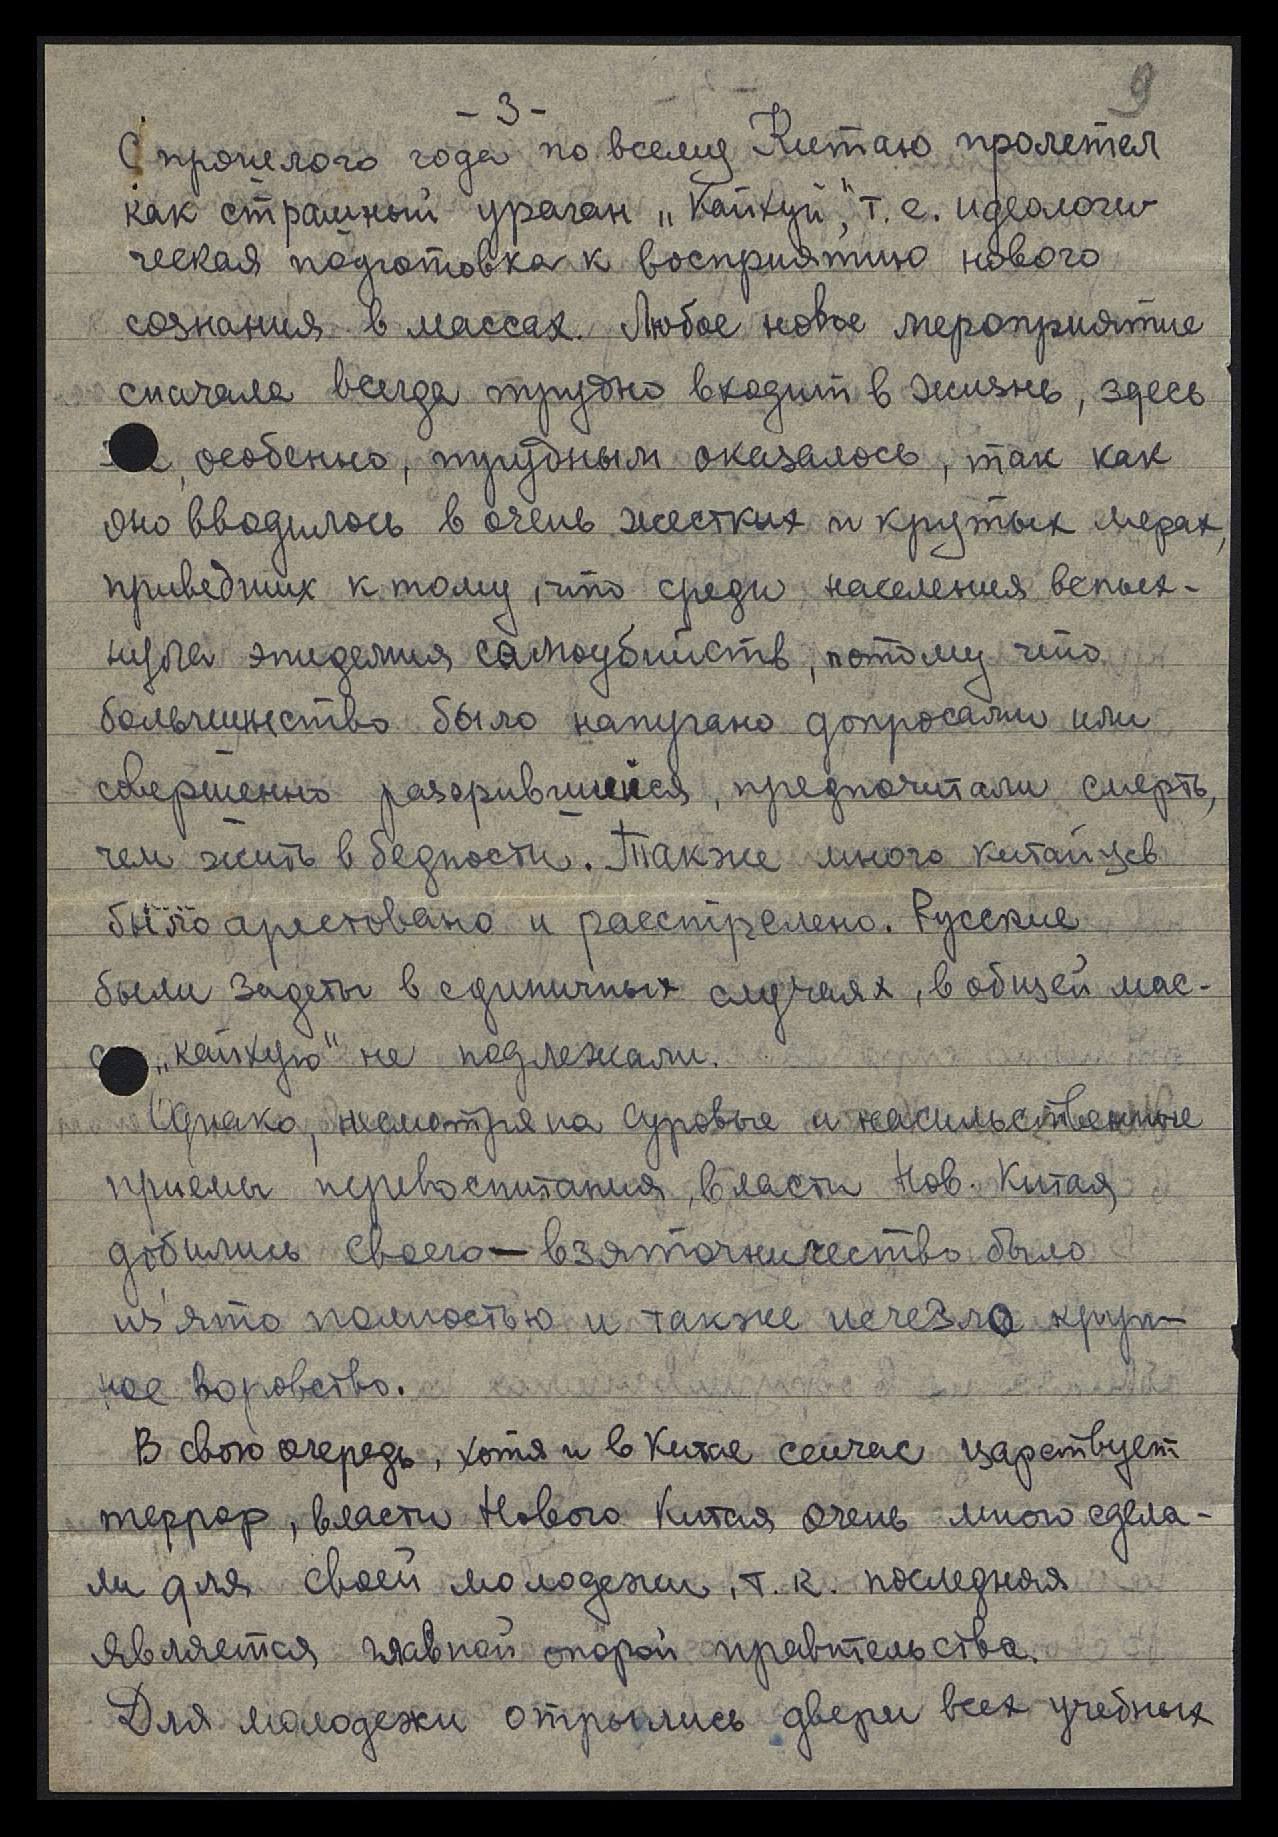 9
- 3 -
С прошлого года по всему Китаю пролетел
как страшный ураган „Кайхуй", т.е. идеологи-
ческая подготовка к восприятию нового
сознания в массах. Любое новое мероприятие
сначала всегда трудно входит в жизнь, здесь
, особенно, трудным оказалось, так как
оно вводилось в очень жестких и крутых мерах,
приведших к тому, что среди населения вспых-
нула эпидемия самоубийств, потому что
большинство было напугано допросами или
совершенно разорившийся, предпочитали смерть,
чем жить в бедности. Также много китайцев
было арестовано и расстрелено. Русские
были задеты в единичных случаях, в общей мас-
„кайхую" не подлежали.
Однако, несмотря на суровые и насильственные
приемы перевоспитания, власти Нов. Китая
добились своего — взяточничество было
из'ято полностью и также исчезло круп-
ное воровство.
В свою очередь, хотя и в Китае сейчас царствует
террор, власти Нового Китая очень много сдела-
ли для своей молодежи, т.к. последняя
является главной опорой правительства.
Для молодежи отрылись двери всех учебных